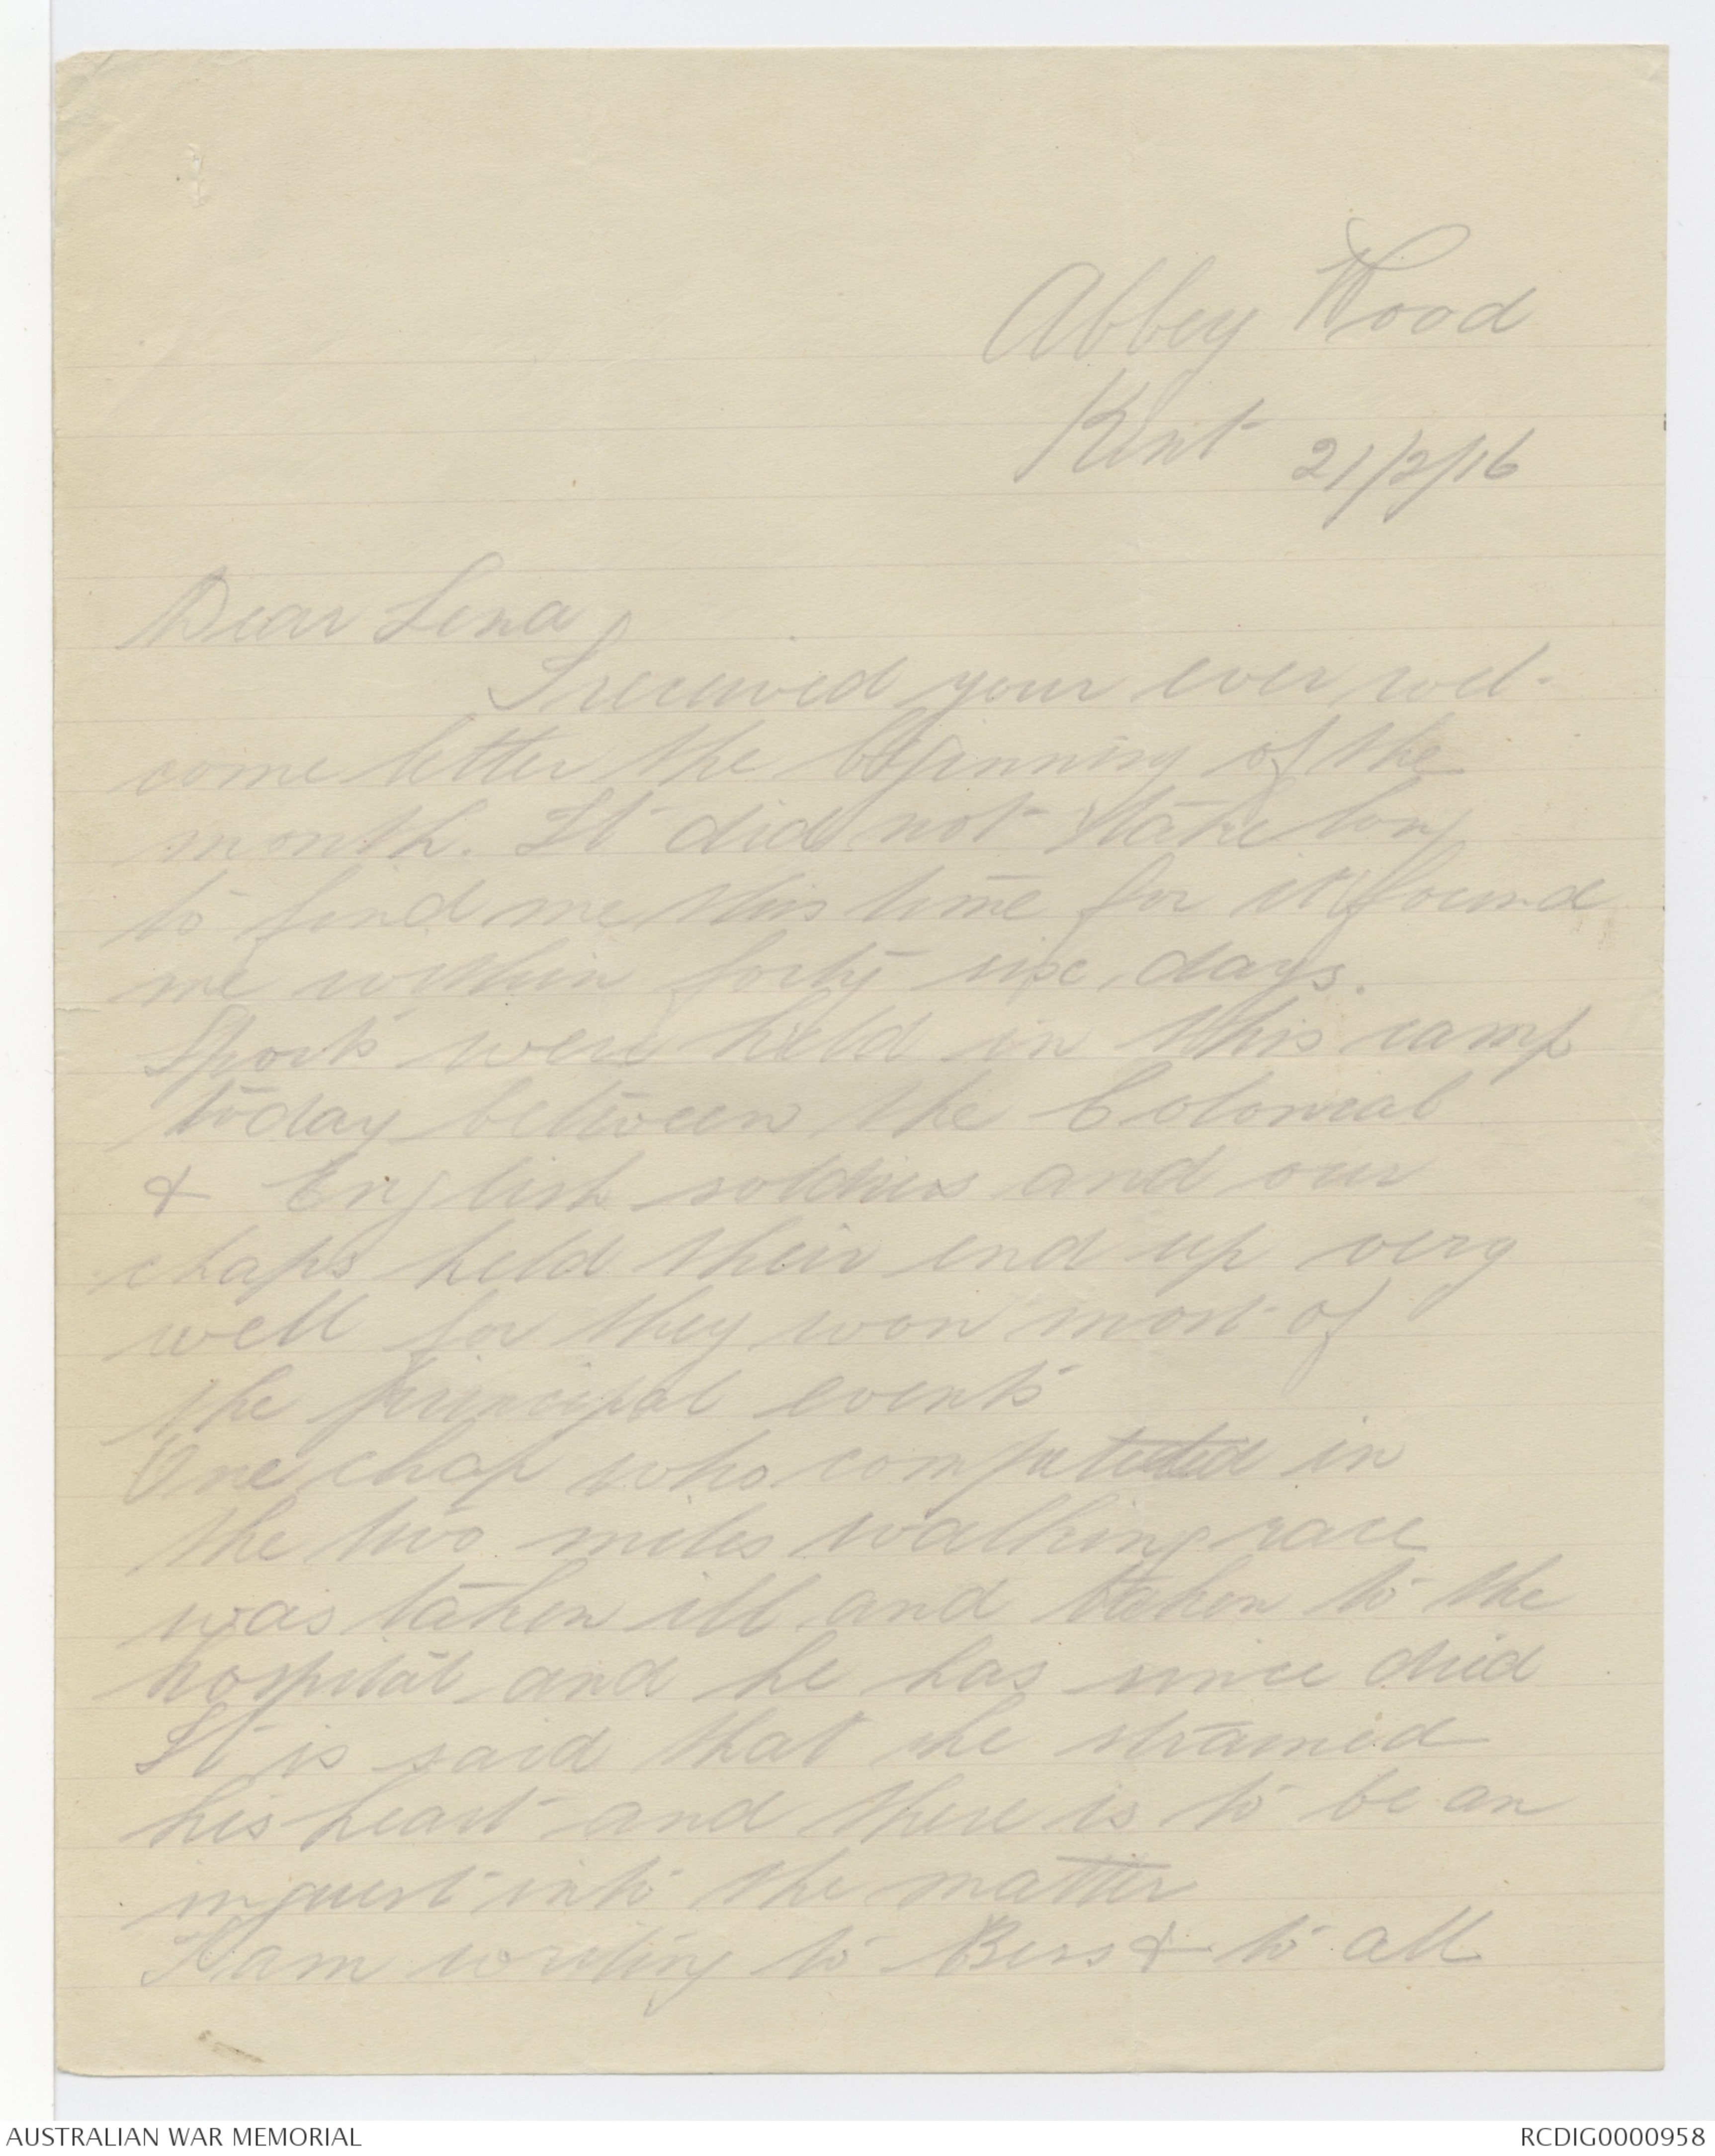 Abbey Wood
Kent 21/2/16
Dear Lena
I received your ever wel-
come letter the beginning of the
month. It did not take long
to find me this time for it found
me within forty six days.
Sports were held in this camp
today between the Colonial
& English soldiers and our
chaps held their end up very
well for they won most of
the principal events
One chap who competed in
the two miles walking race
was taken ill and taken to the
hospital and he has since died
It is said that he strained
his heart and there is to be an
inquest into the matter
I am writing to Bess & to all
AUSTRALIAN WAR MEMORIAL
RCDIG0000958